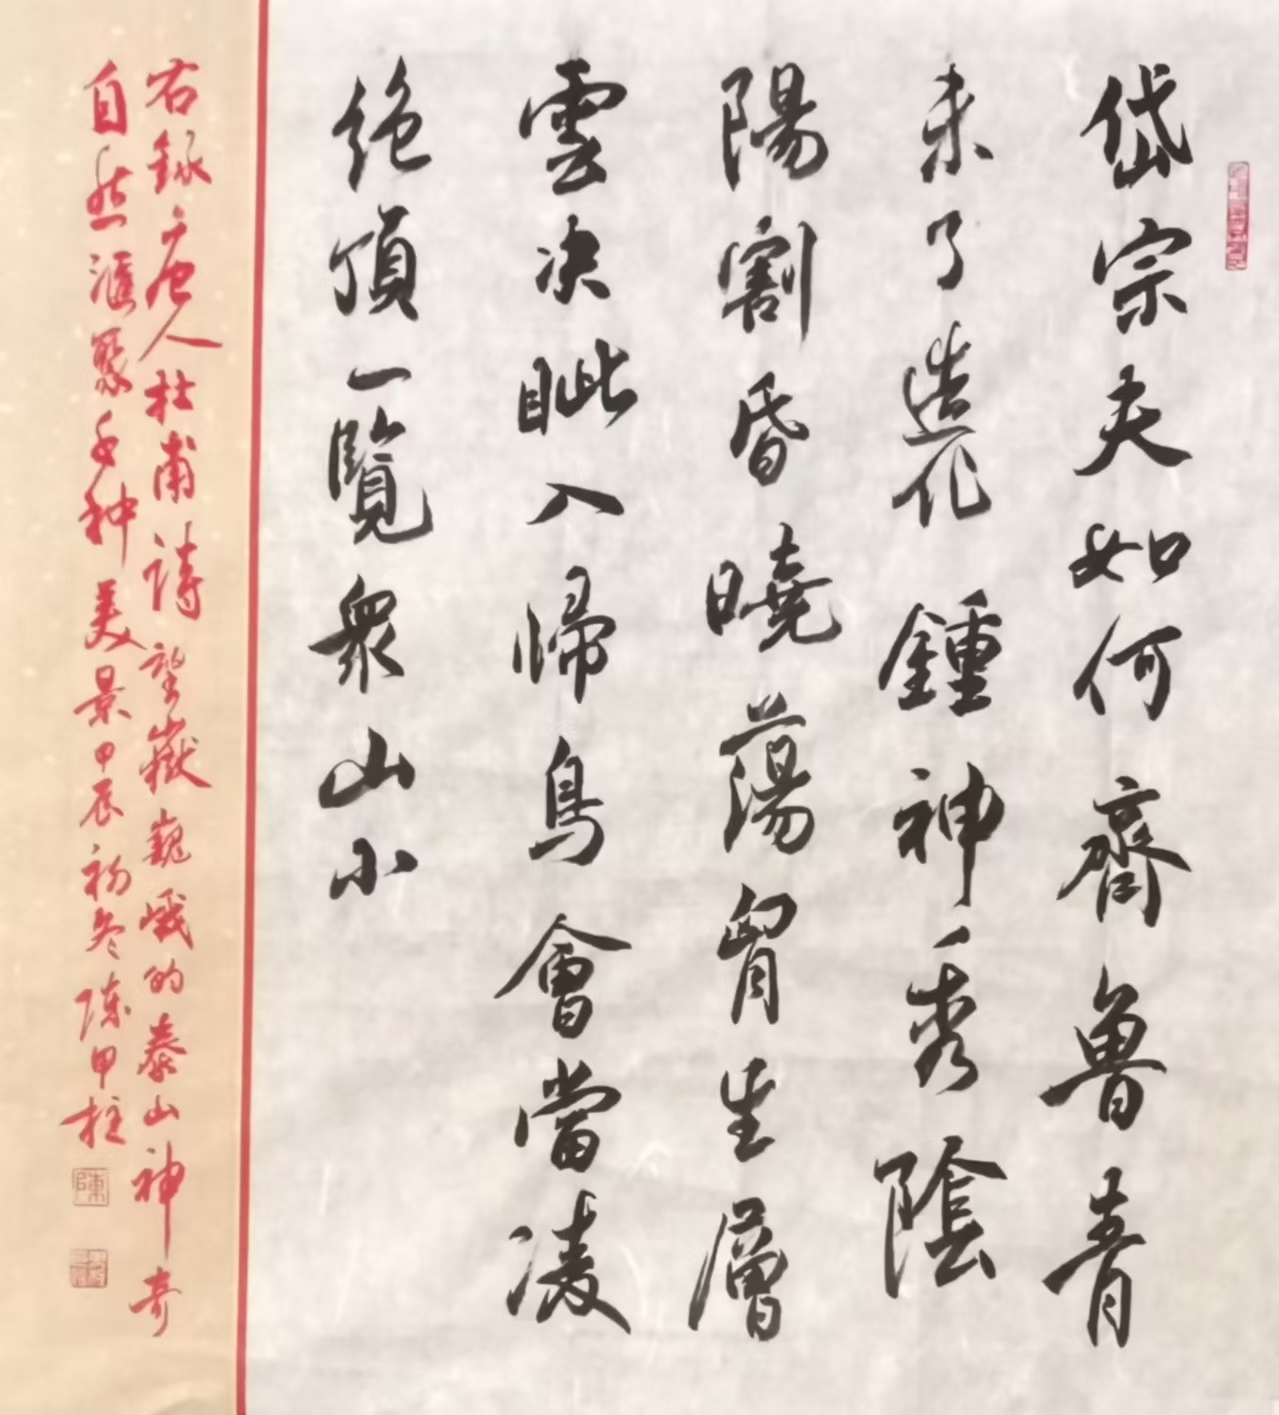 岱宗夫如何齊魯青
未了造化鍾神秀陰
陽割昏曉蕩胷生層
雲决眦入歸鳥會當凌
絶頂一覽衆山小
右録唐人杜甫詩望嶽巍峨的泰山神奇
自然滙聚千种美景甲辰初冬陳甲柱
陳